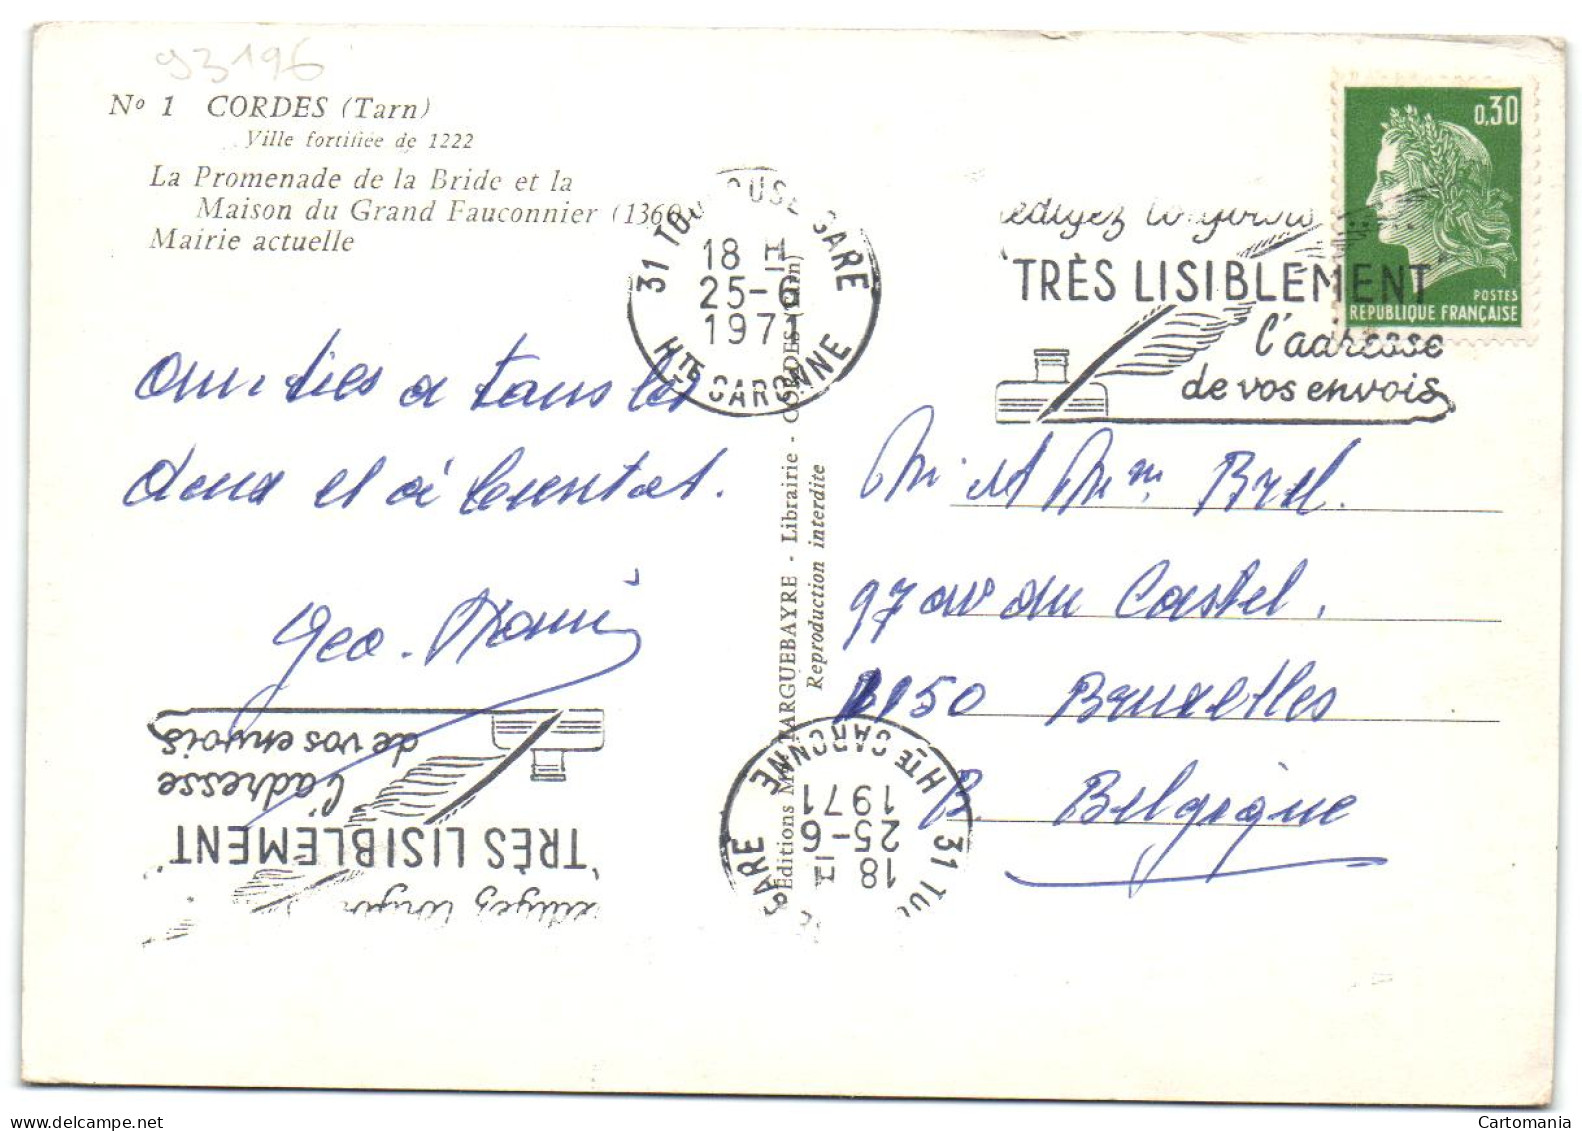 93196
Nº 1 CORDES (Tarn)
Ville fortifiée de 1222
La Promenade de la Bride et la
Maison du Grand Fauconnier (1360)
Mairie actuelle
31 TOULOUSE GARE
18 H
25-6
1971
HTE GARONNE
0,30
POSTES
REPUBLIQUE FRANÇAISE
rédigez toujours
"TRÈS LISIBLEMENT"
l'adresse
de vos envois
Amitiés a tous les
deux et à bientot.
Geo.
Editions Mme FARGUEBAYRE - Librairie - CORDES (Tarn)
Reproduction interdite
Mr et Mme Brel.
97 av du Castel,
1150 Bruxelles
B. Belgique
31 TOULOUSE GARE
18 H
25-6
1971
HTE GARONNE
rédigez toujours
"TRÈS LISIBLEMENT"
l'adresse
de vos envois
Cartomania